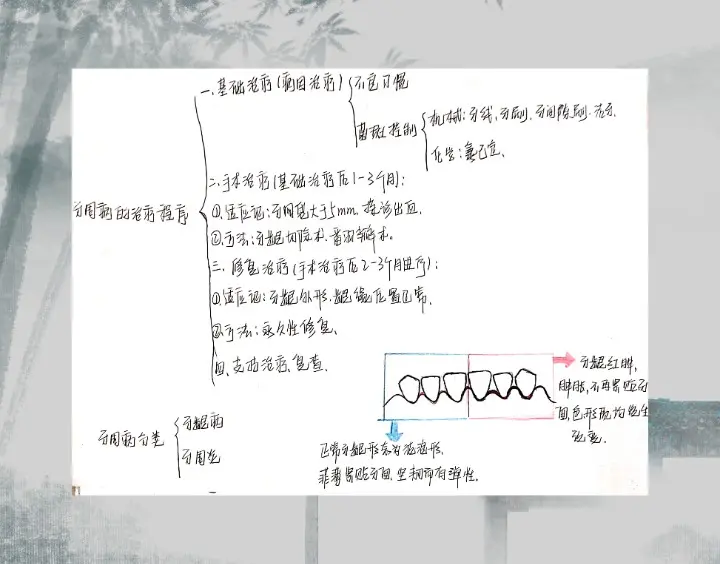 一、基础治疗(病因治疗)
不良习惯
菌斑控制
机械:牙线、牙刷、牙间隙刷、洁牙
化学:氯己定、
牙周病的治疗程序
二、手术治疗(基础治疗后1-3个月):
①、适应证:牙周袋大于5mm、探诊出血
②、方法:牙龈切除术、翻瓣术。
三、修复治疗(手术治疗后2-3个月进行):
①、适应证:牙龈外形、龈缘位置正常、
②、方法:永久性修复、
四、支持治疗、复查、
牙周病分类
牙龈病
牙周炎
牙龈红肿,
肿胀,不再紧贴牙
面,色形质均发生
改变.
正常牙龈形态为
菲薄紧贴牙面,坚韧而有弹性.